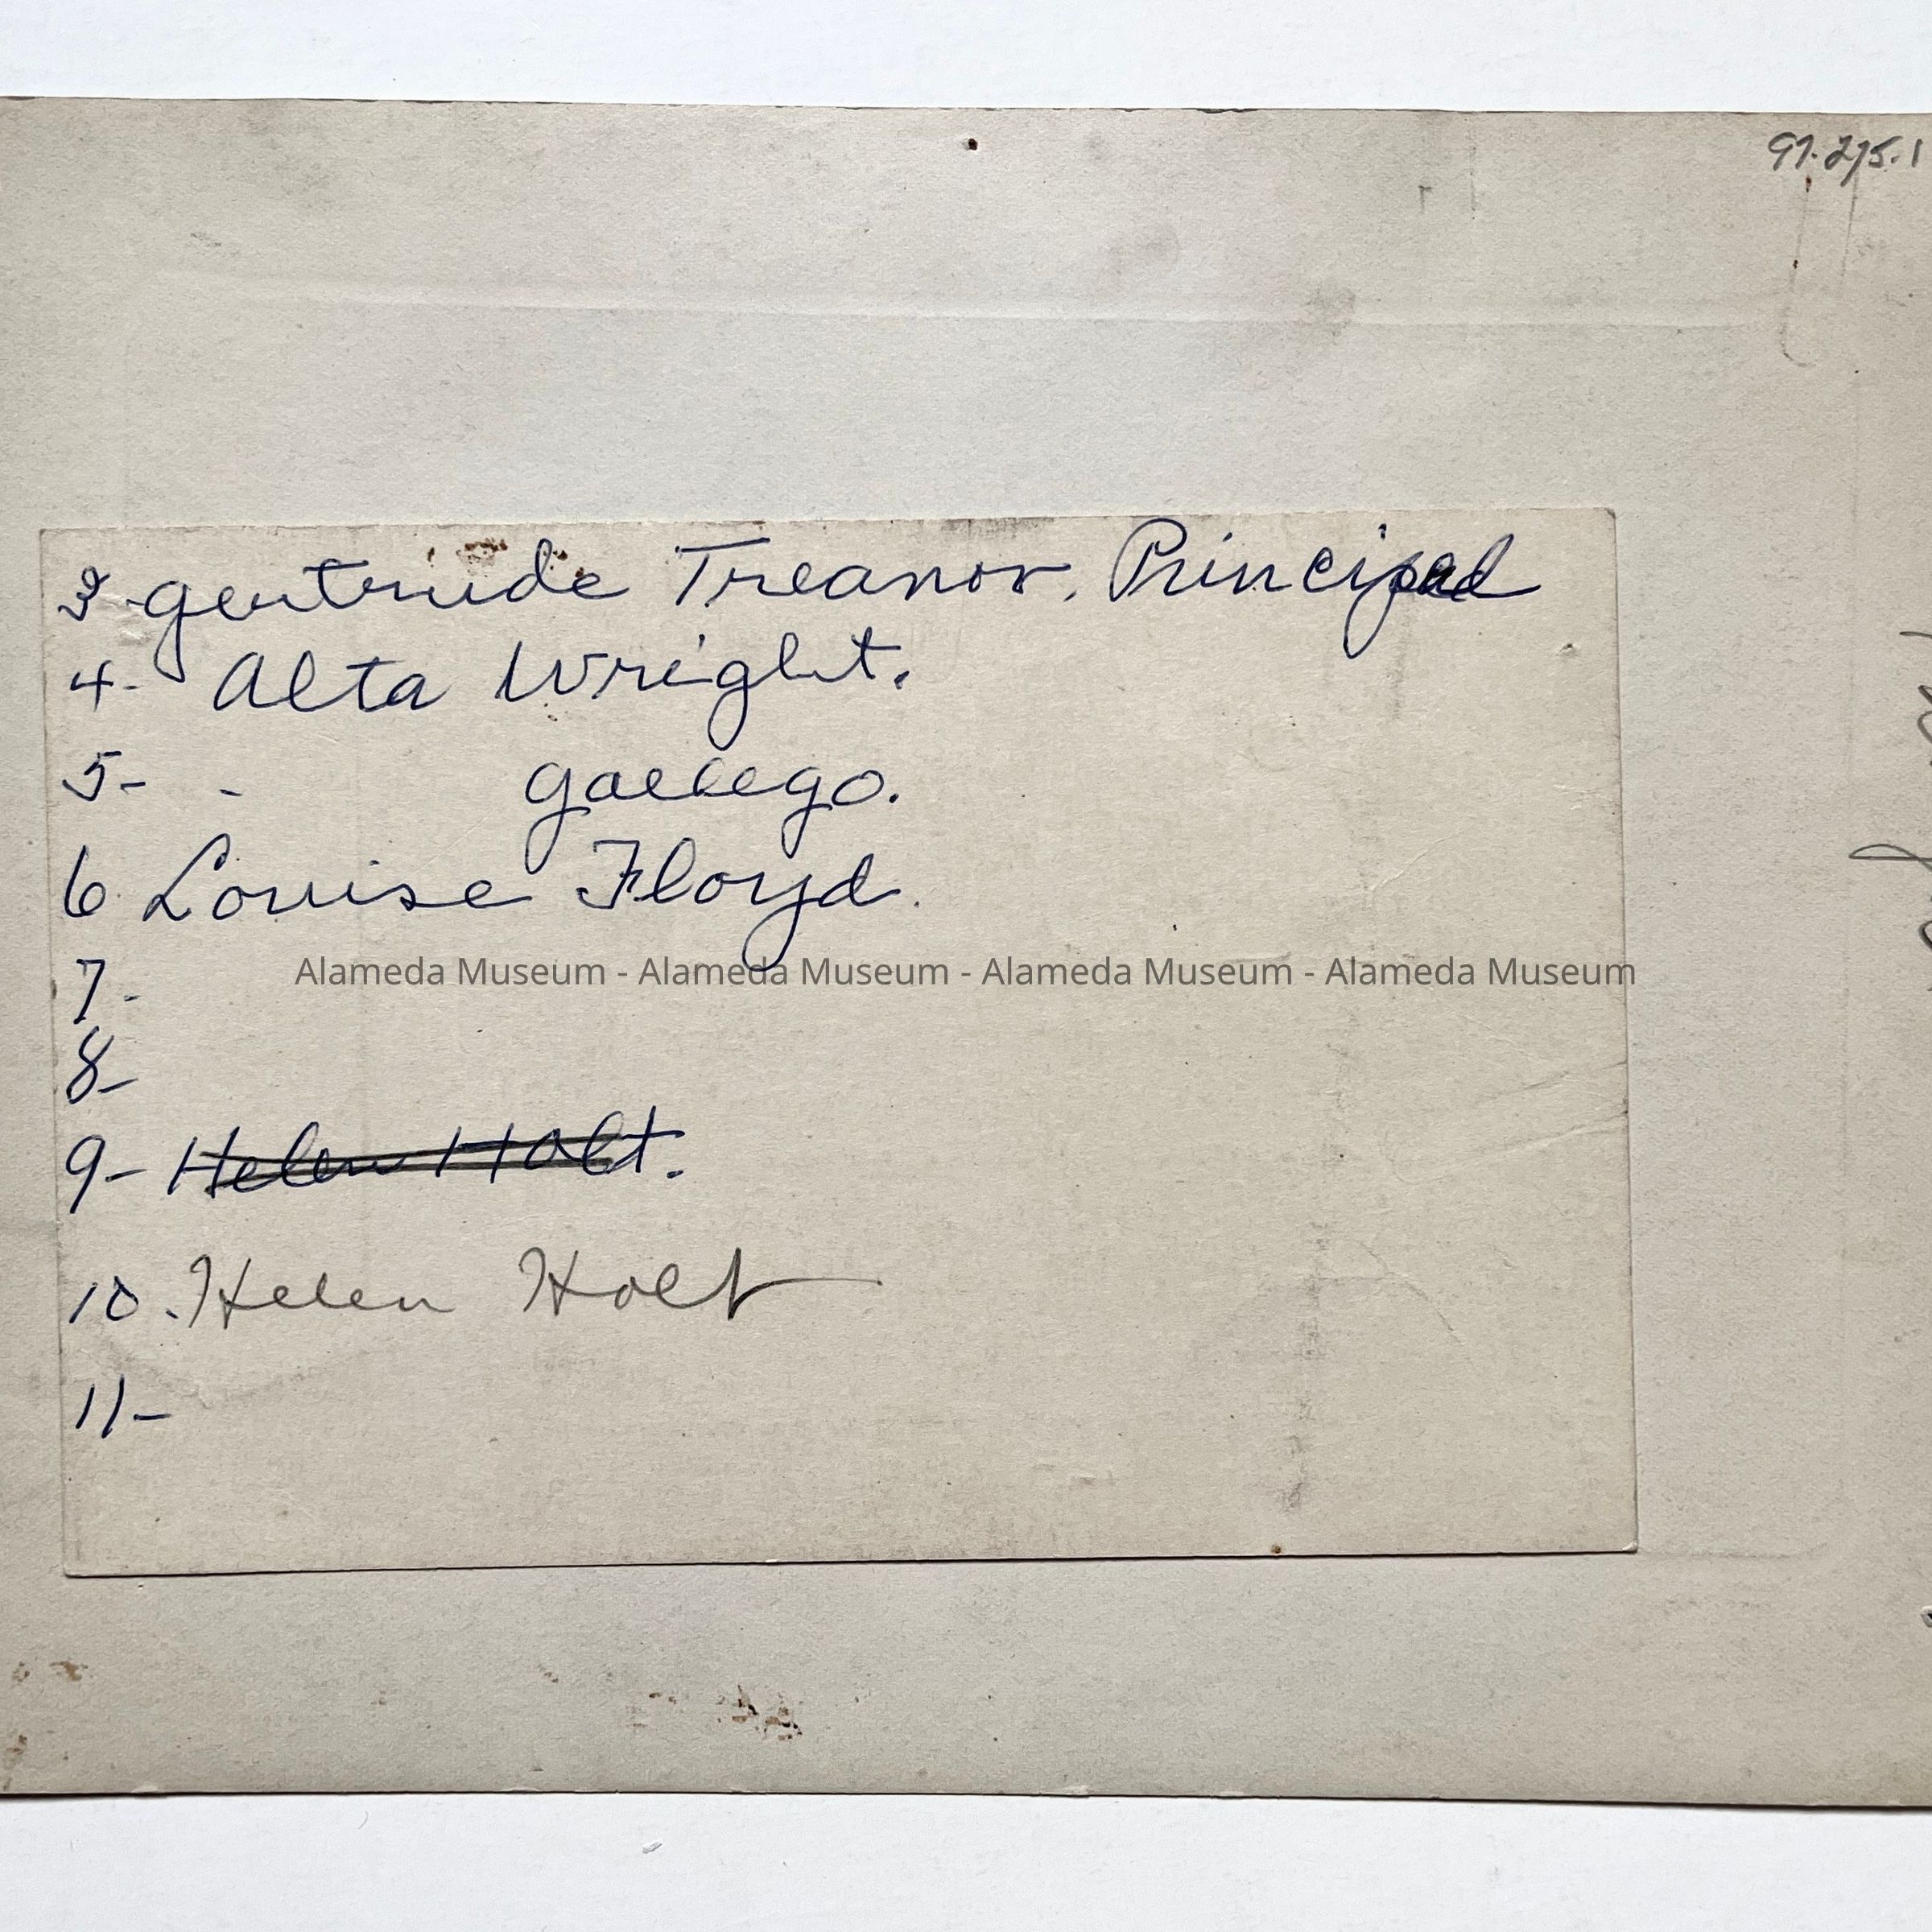 97.275.1
3-Gertrude Treanor. Principal
4- Alta Wright.
5- - Gallego.
6 Louise Floyd.
Alameda Museum - Alameda Museum - Alameda Museum - Alameda Museum
7-
8-
9- Helen Holt.
10. Helen Holt
11-